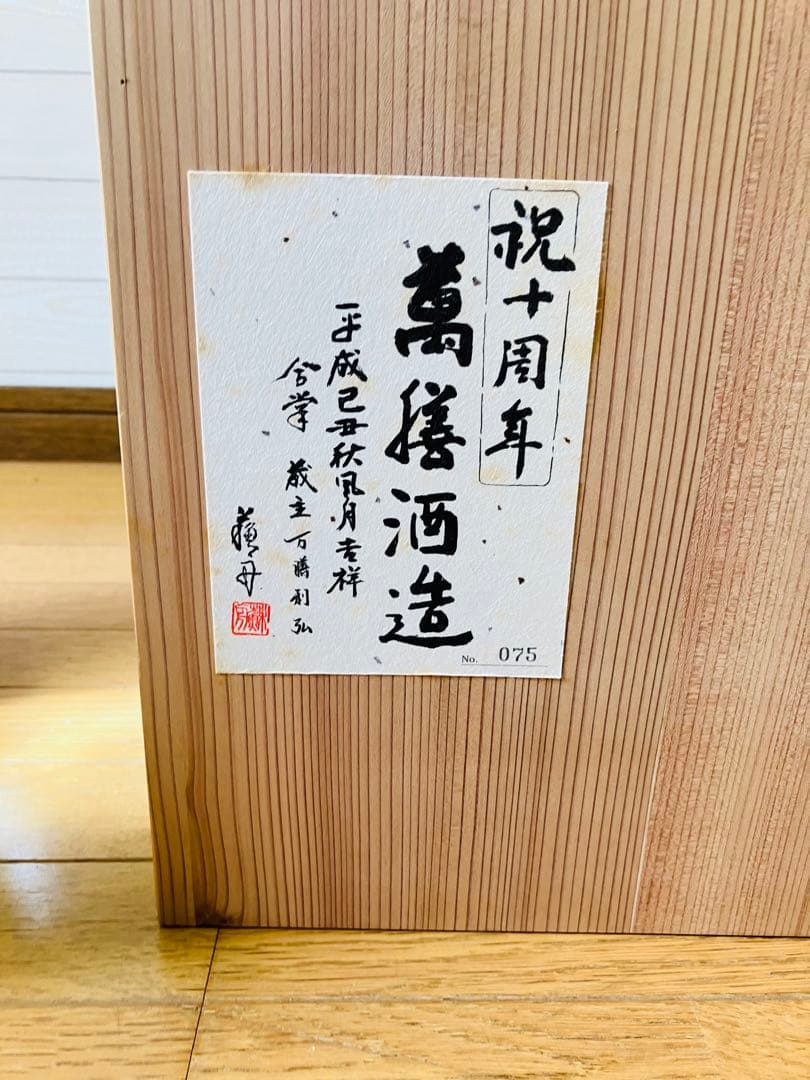 祝十周年
萬膳酒造
平成己丑秋風月吉祥
合掌 蔵主 万膳利弘
No. 075